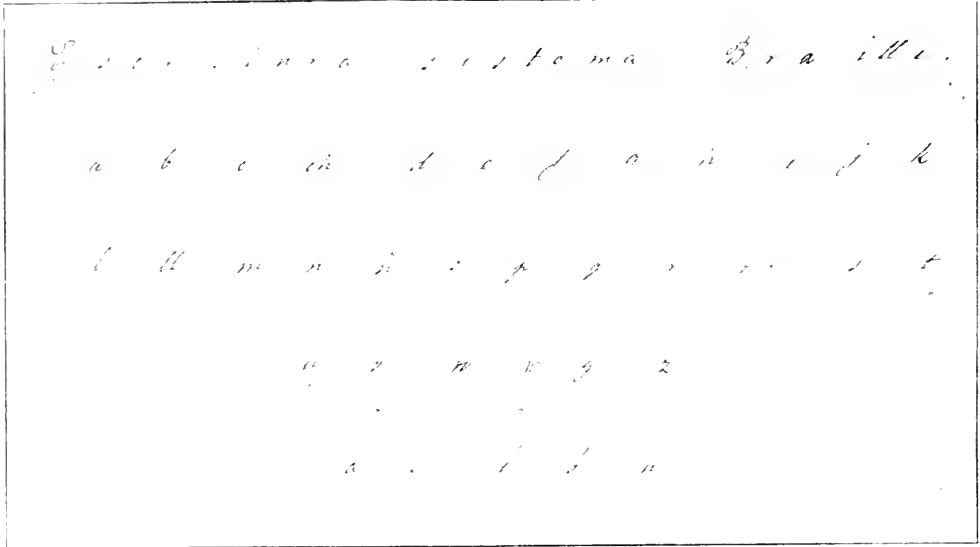 sistema Braille.
a b c ch d e f g h i j k
l ll m n ñ o p q r rr s t
u v w x y z
a é í ó ú